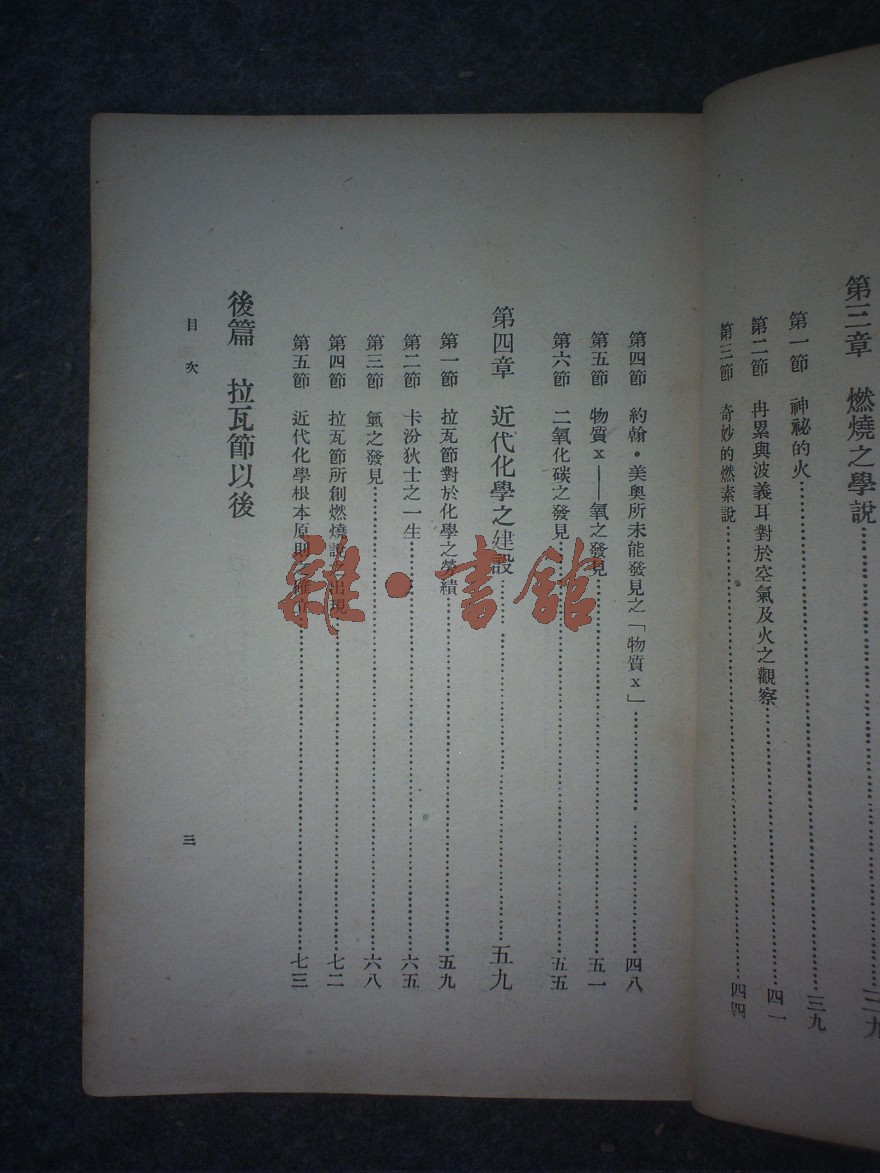 第三章 燃燒之學說……三九
第一節 神祕的火……三九
第二節 冉累與波義耳對於空氣及火之觀察……四一
第三節 奇妙的燃素說……四四
第四節 約翰・美奧所未能發見之「物質x」……四八
第五節 物質x——氧之發見……五一
第六節 二氧化碳之發見……五五
第四章 近代化學之建設……五九
第一節 拉瓦節對於化學之勞績……五九
第二節 卡汾狄士之一生……六五
第三節 氫之發見……六八
第四節 拉瓦節所創燃燒說之出現……七二
第五節 近代化學根本原則之確立……七三
後篇 拉瓦節以後
目次 三
雜・書館